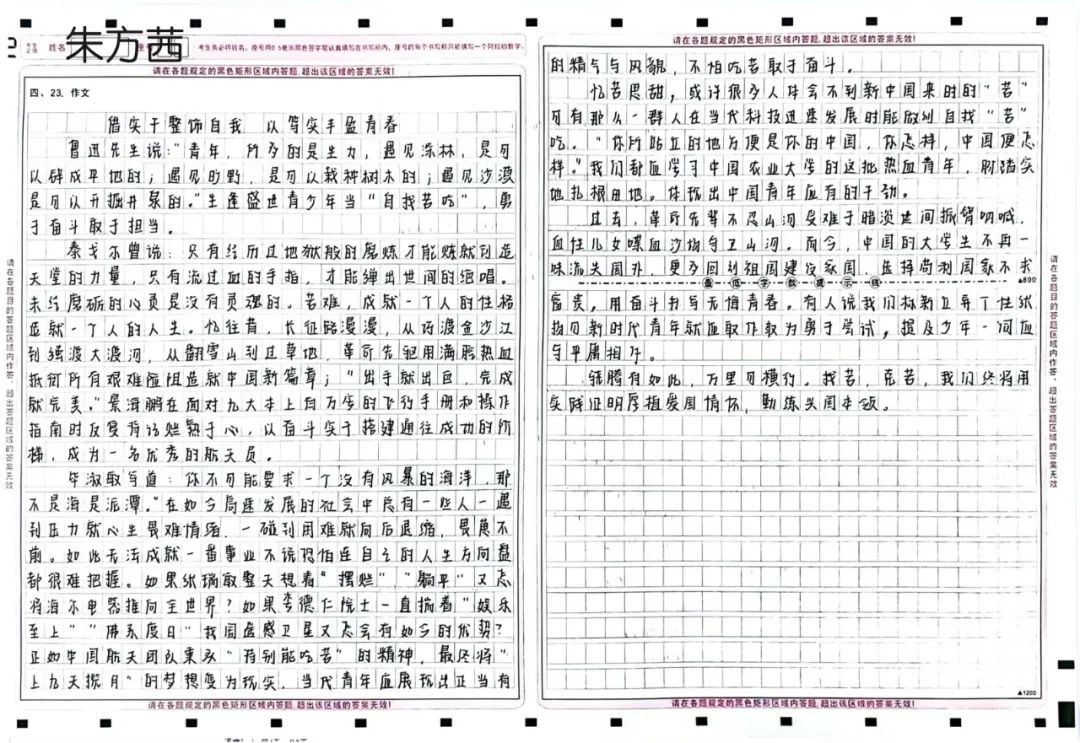 姓名
朱方茜
考生务必将姓名、座号用0.5毫米黑色签字笔认真填写在书写框内,座号的每个书写框只能填写一个阿拉伯数字。
请在各题规定的黑色矩形区域内答题,超出该区域的答案无效!
四、23. 作文
借实干整饰自我 以笃实丰盈青春
鲁迅先生说:“青年,所多的是生力,遇见深林,是可
以辟成平地的;遇见旷野,是可以栽种树木的;遇见沙漠
是可以开掘井泉的。”生逢盛世青少年当“自找苦吃”,勇
于奋斗敢于担当。
泰戈尔曾说:只有经历过地狱般的磨炼才能炼就创造
天堂的力量,只有流过血的手指,才能弹出世间的绝唱。
未经磨砺的心灵是没有灵魂的。苦难,成就一个人的性格
造就一个人的人生。忆往昔,长征路漫漫,从巧渡金沙江
到强渡大渡河,从翻雪山到过草地,革命先辈用满腔热血
抵御所有艰难险阻造就中国新篇章;“出手就出色,完成
就完美。”景海鹏在面对九大本上百万字的飞行手册和操作
指南时反复背诵烂熟于心,以奋斗实干搭建通往成功的桥
梁,成为一名优秀的航天员。
毕淑敏写道:你不可能要求一个没有风暴的海洋,那
不是海是泥潭。”在如今高速发展的社会中总有一些人一遇
到压力就心生畏难情绪,一碰到困难就向后退缩,畏惧不
前。如此无法成就一番事业不说恐怕连自己的人生方向盘
都很难把握。如果张瑞敏整天想着“摆烂”“躺平”又怎
将海尔电器推向全世界?如果李德仁院士一直揣着“娱乐
至上”“佛系度日”我国遥感卫星又怎会有如今的优势?
正如中国航天团队秉承“特别能吃苦”的精神,最终将“
上九天揽月”的梦想变为现实,当代青年应展现出正当有
请在各题规定的黑色矩形区域内答题,超出该区域的答案无效!
请在各题规定的黑色矩形区域内答题,超出该区域的答案无效!
的精气与风貌,不怕吃苦敢于奋斗。
忆苦思甜,或许很多人体会不到新中国来时的“苦”
可有那么一群人在当代科技迅速发展时能做到自找“苦”
吃。“你所站立的地方便是你的中国,你怎样,中国便怎
样。”我们都应学习中国农业大学的这批热血青年,脚踏实
地扎根田地。体现出中国青年应有的干劲。
过去,革命先辈不忍山河受难于暗淡世间振臂呐喊,
血性儿女喋血沙场守卫山河。而今,中国的大学生不再一
味流失国外,更多回到祖国建设家国,选择尚利国家不求
最低字数提示线
▲800
富贵,用奋斗书写无悔青春。有人说我们标新立异个性张
扬可新时代青年就应敢作敢为勇于尝试,提及少年一词应
与平庸相斥。
铁腾有如此,万里可横行。找苦,克苦,我们终将用
实践证明厚植爱国情怀,勤练兴国本领。
▲1200
请在各题规定的黑色矩形区域内答题,超出该区域的答案无效!
请在各题目的答题区域内作答,超出答题区域的答案无效
请在各题目的答题区域内作答,超出答题区域的答案无效